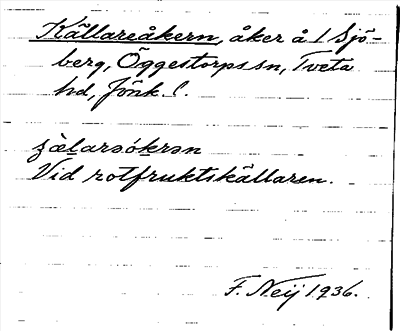 Källareåkern, åker å 1 Sjö-
berg, Öggestorps sn, Tveta
hd, Jönk. l.
şälarəókrən
Vid rotfruktskällaren.
F. Neij 1936.